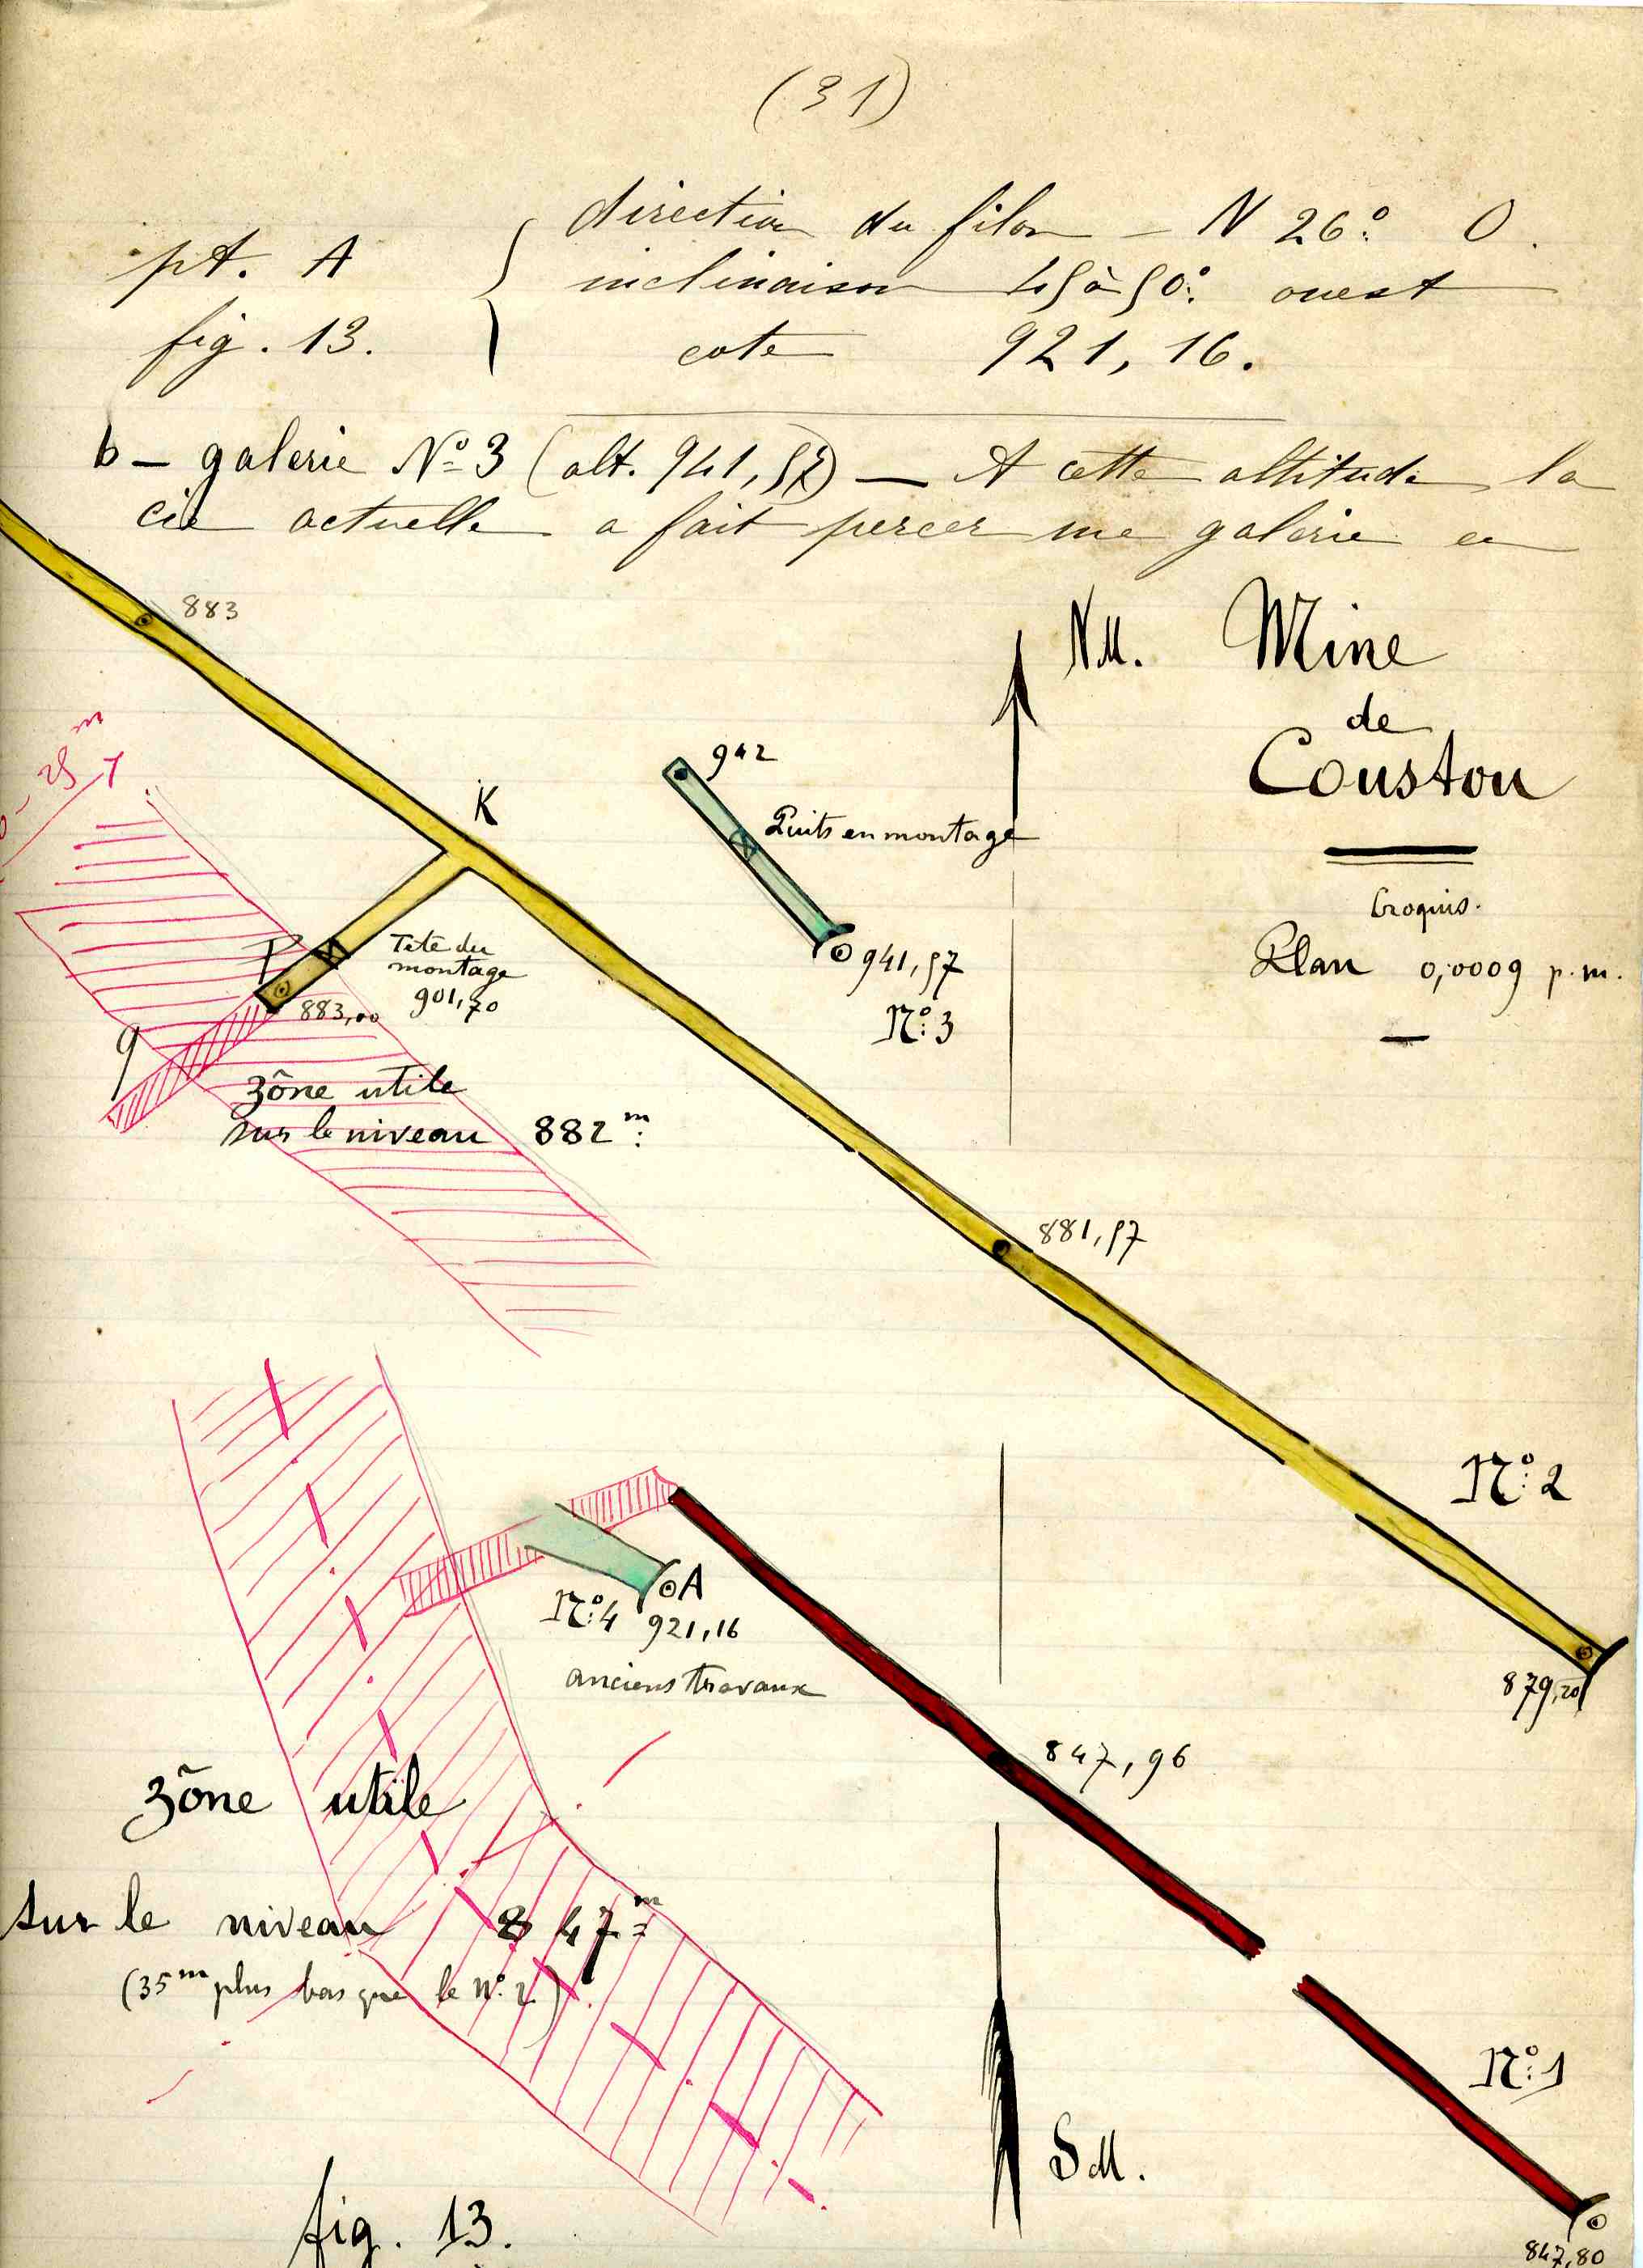 (31)
pt. A
fig. 13.
direction du filon — N 26° O.
inclinaison 45 à 50° ouest
cote 921,16.
b — galerie N° 3 (alt. 941,57) — A cette altitude la
cie actuelle a fait percer une galerie en
883
N.M.
Mine
de
Couston
Croquis.
Plan 0,0009 p.m.
25 m
K
942
Puits en montage
941,57
N° 3
P
Tête du
montage
901,70
883,00
q
zône utile
sur le niveau 882 m
881,57
N° 2
879,20
A
N° 4 921,16
anciens travaux
847,96
zône utile
sur le niveau 847 m
(35 m plus bas que le N° 2)
N° 1
S.M.
fig. 13.
847,80